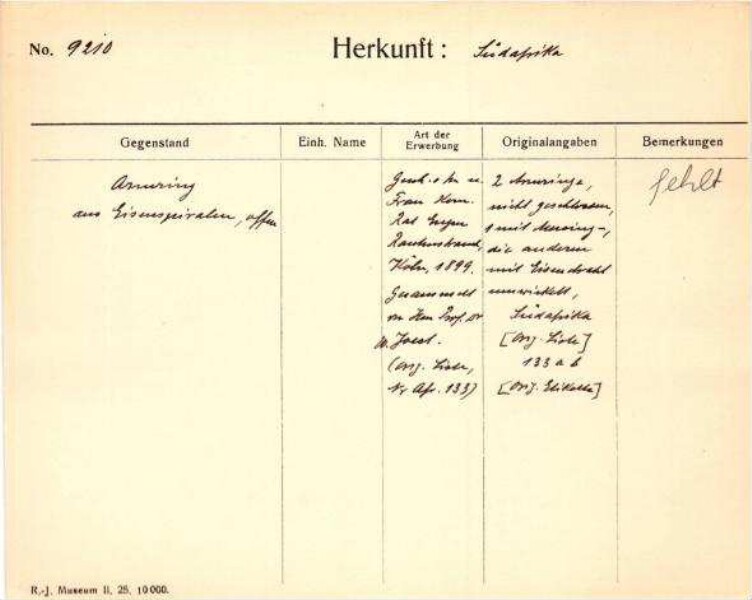 No. 9210
Herkunft: Südafrika
Gegenstand
Einh. Name
Art der
Erwerbung
Originalangaben
Bemerkungen
Armring
aus Eisenspiralen, offen
Gesch. v. Hr. u.
Frau Kom.
Rat Eugen
Rautenstrauch,
Köln, 1899.
Gesammelt
von Herr Prof. Dr
W. Joest.
(Orig. Liste,
Nr Afr. 133)
2 Armringe,
nicht geschlossen,
1 mit Messing-,
die anderen
mit Eisendraht
umwickelt,
Südafrika
[Orig. Liste]
133 a b
[Orig. Etikette]
fehlt
R.-J. Museum II. 25. 10000.